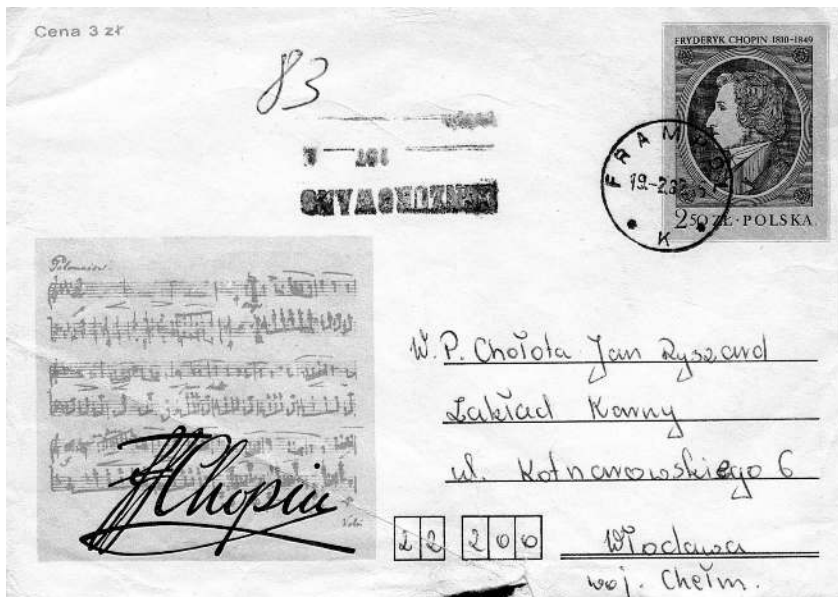 Cena 3 zł
83
FRYDERYK CHOPIN 1810-1849
FRAMPOL
19.-2.82
K
2 50 ZŁ · POLSKA
OCENZUROWANO
Polonaise
Chopin
W. P. Chołota Jan Ryszard
Zakład Karny
ul. Kotnarowskiego 6
22 200 Włodawa
woj. Chełm.